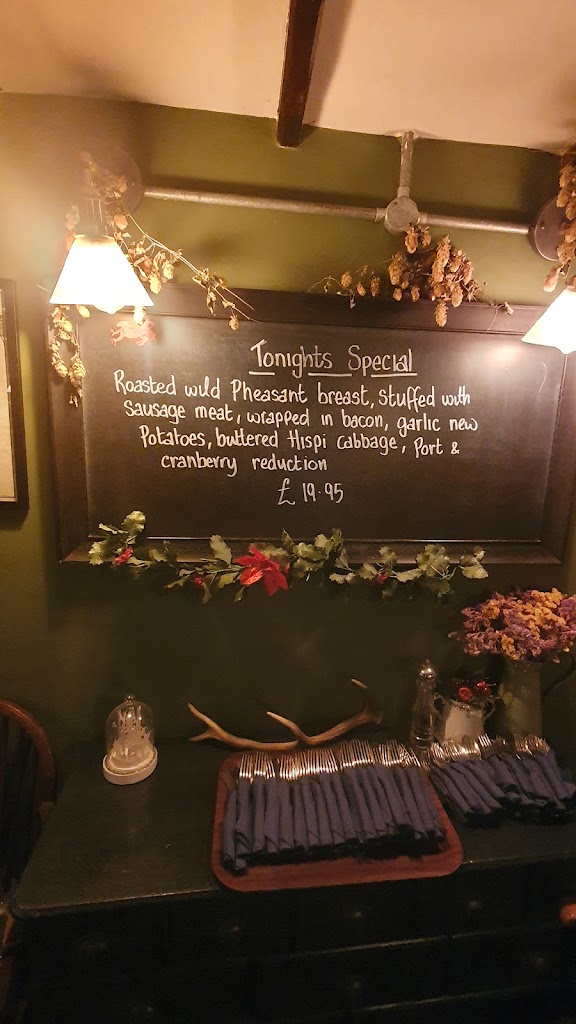 Tonights Special
Roasted wild Pheasant breast, stuffed with
sausage meat, wrapped in bacon, garlic new
Potatoes, buttered Hispi cabbage, Port &
cranberry reduction
£ 19.95